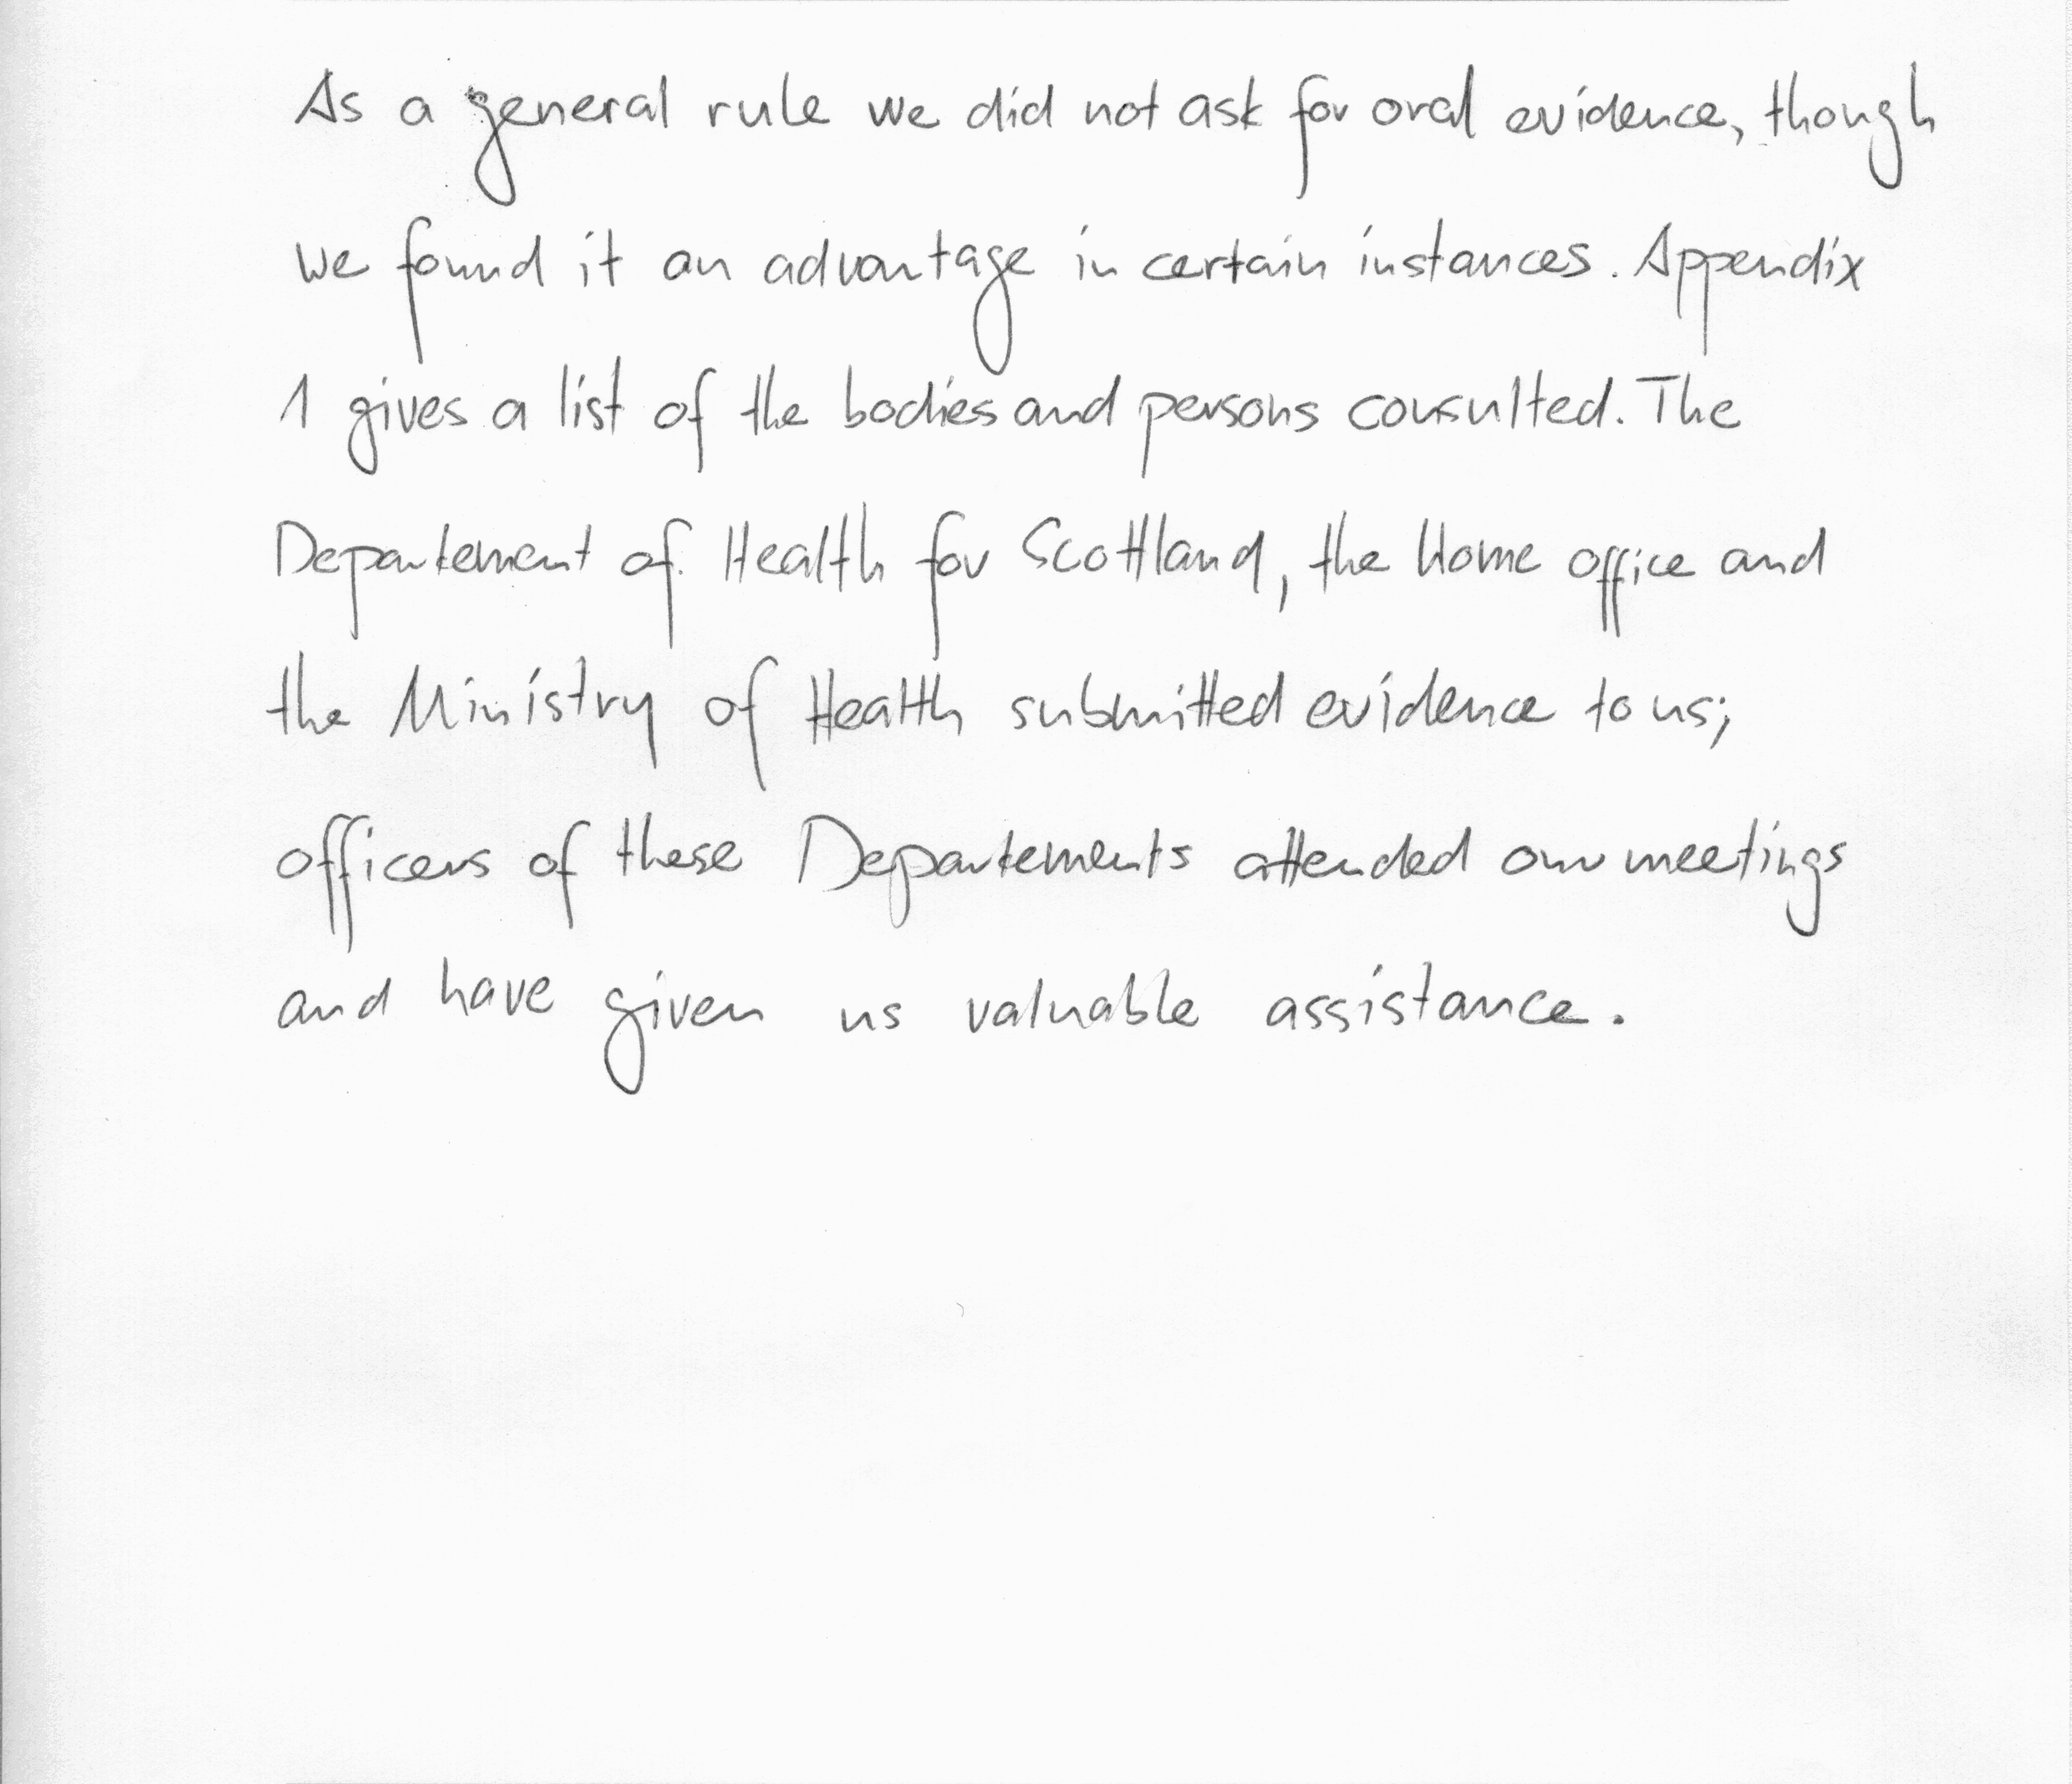 As a general rule we did not ask for oral evidence, though
we found it an advantage in certain instances. Appendix
1 gives a list of the bodies and persons consulted. The
Departement of Health for Scottland, the Home office and
the Ministry of Health submitted evidence to us;
officers of these Departements attended our meetings
and have given us valuable assistance.